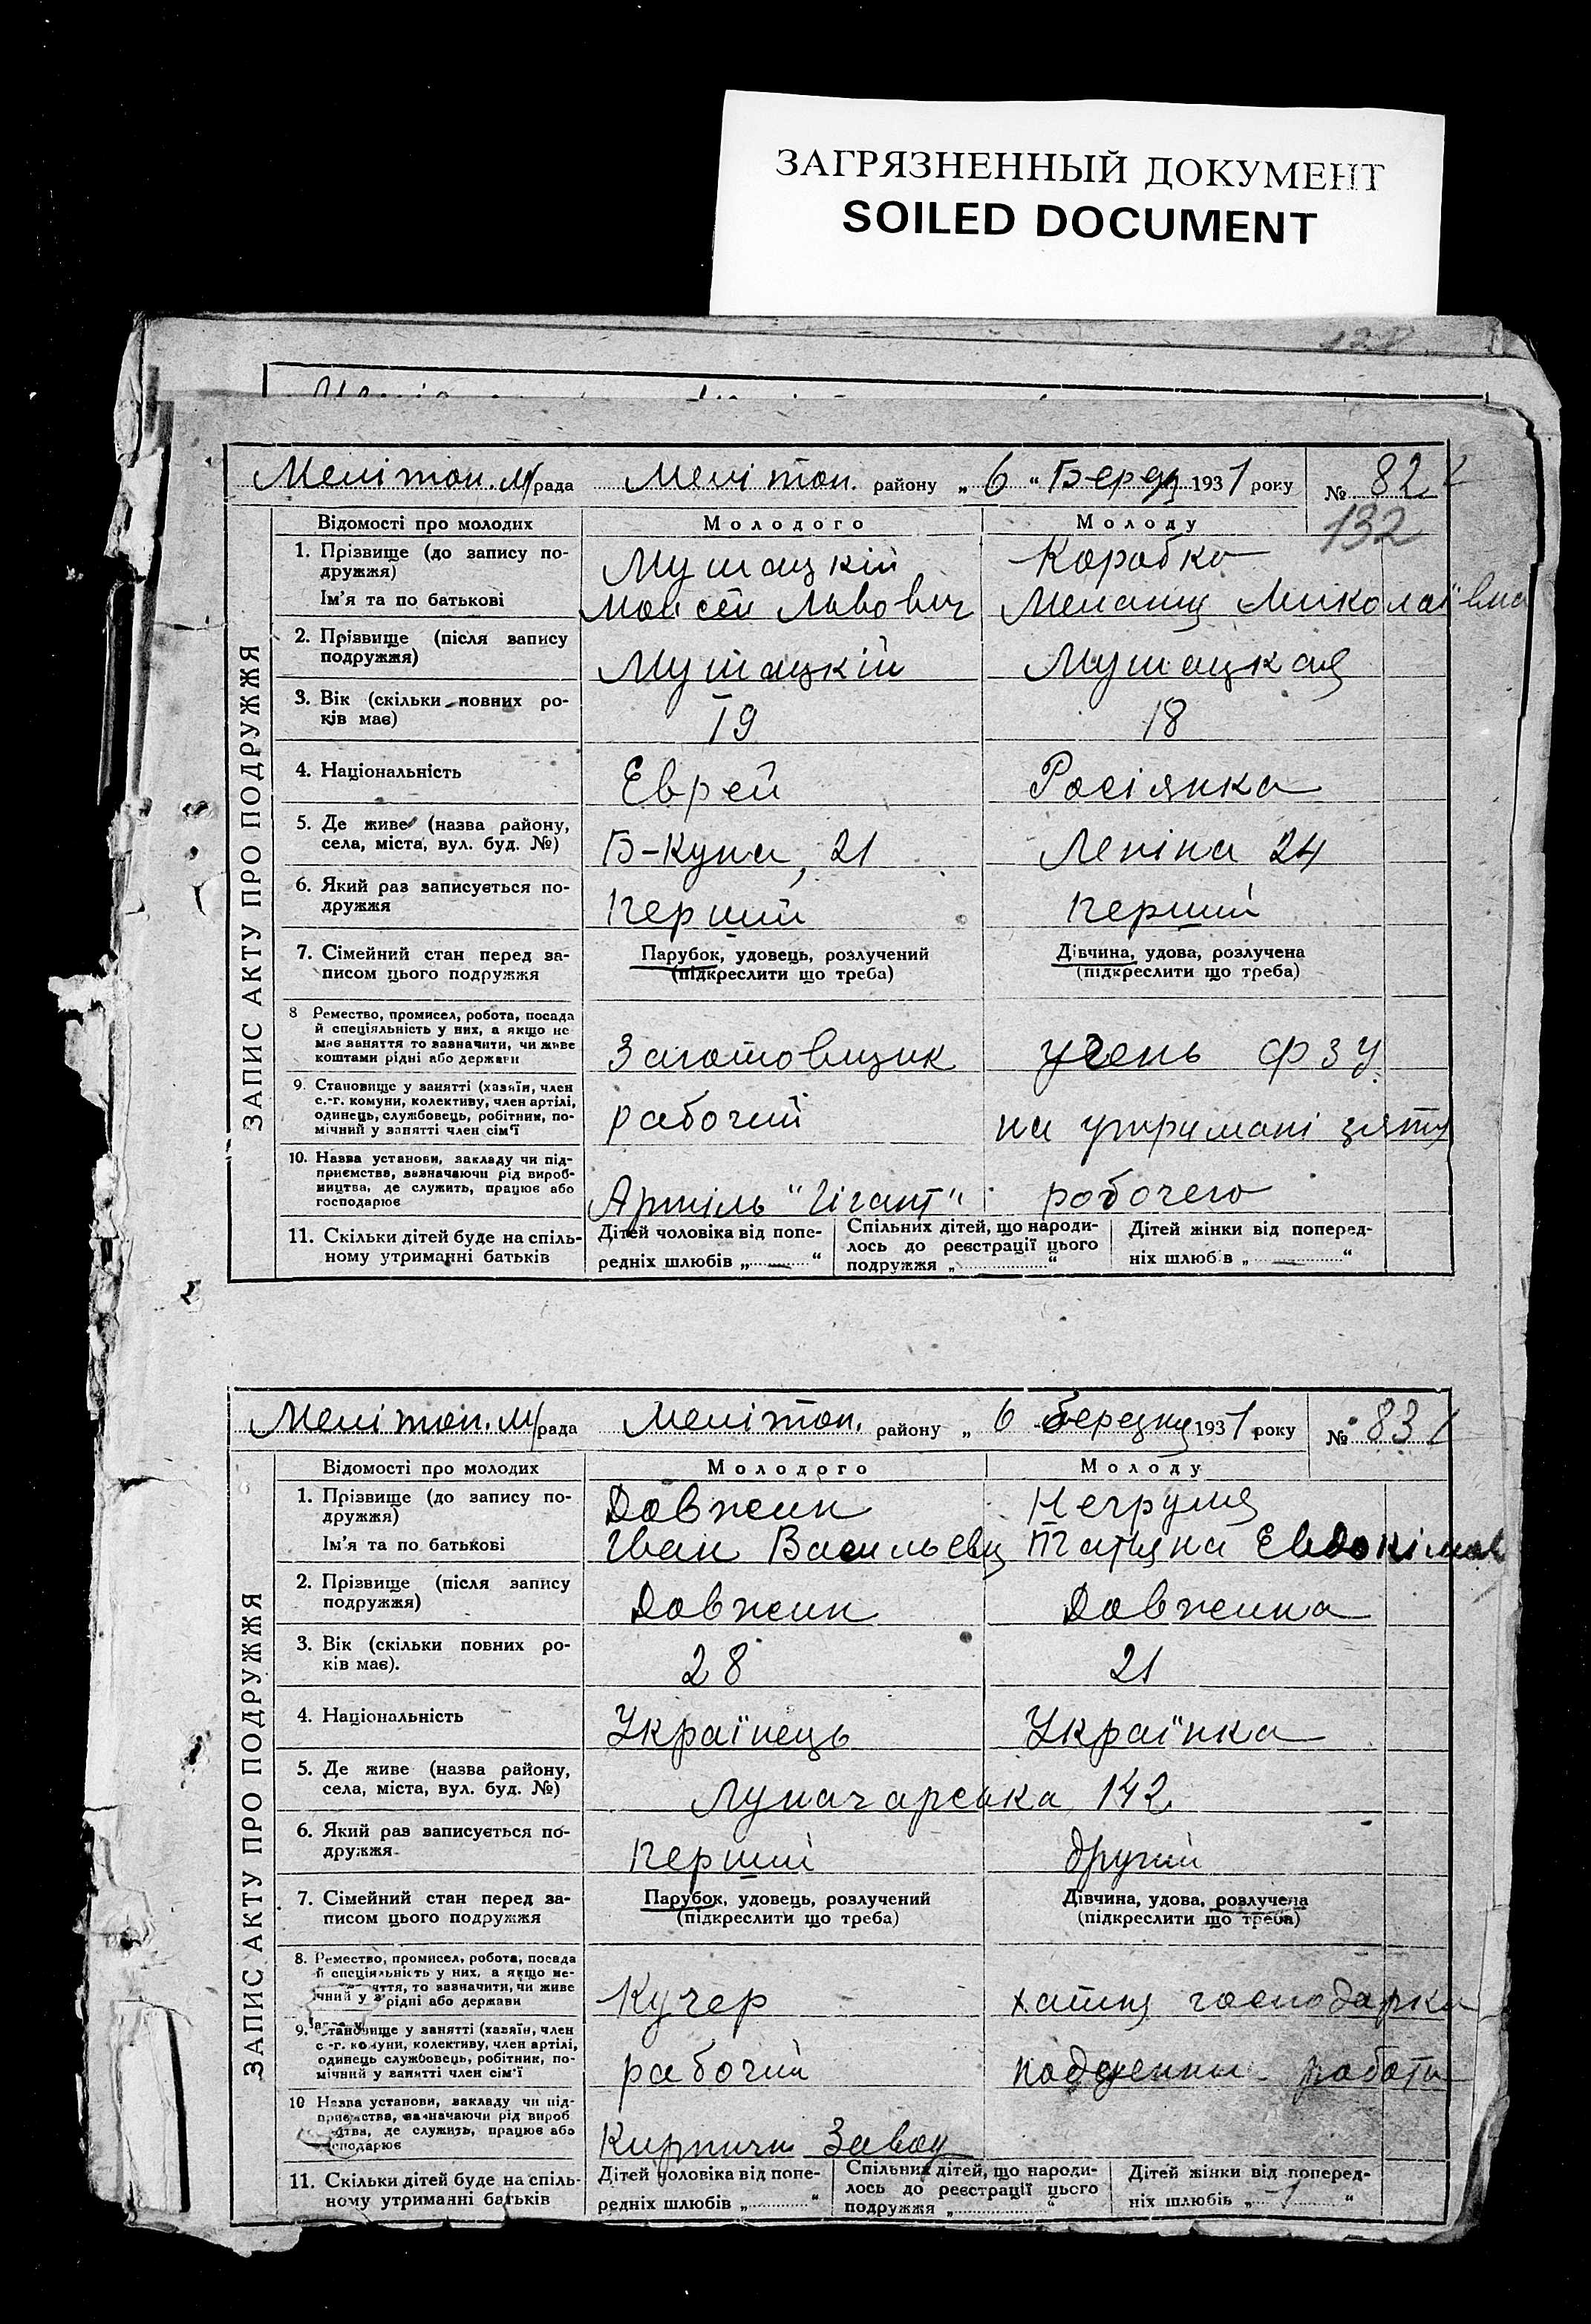 ЗАГРЯЗНЕННЫЙ ДОКУМЕНТ
SOILED DOCUMENT
Мелітоп. м/рада Мелітоп. району „ 6 “ Берез 1931 року № 82
132
Відомості про молодих Молодого Молоду
ЗАПИС АКТУ ПРО ПОДРУЖЖЯ
1. Прізвище (до запису по-
дружжя) Мушацкій Коробко
Ім'я та по батькові Моисей Львович Меланія Миколаївна
2. Прізвище (після запису
подружжя) Мушацкій Мушацкая
3. Вік (скільки повних ро-
ків має) 19 18
4. Національність Еврей Росіянка
5. Де живе (назва району,
села, міста, вул. буд. №) Б-Куна, 21 Леніна 24
6. Який раз записується по-
дружжя Перший Перший
7. Сімейний стан перед за- Парубок, удовець, розлучений Дівчина, удова, розлучена
писом цього подружжя (підкреслити що треба) (підкреслити що треба)
8 Ремество, промисел, робота, посада
й спеціяльність у них, а якщо не
має заняття то зазначити, чи живе
коштами рідні або держави Заготовщик учень ФЗУ
9. Становище у занятті (хазяїн, член
с.-г. комуни, колективу, член артілі,
одинець, службовець, робітник, по-
мічний у занятті член сім'ї рабочий на утримані зятя
10. Назва установи, закладу чи під-
приємства, зазначаючи рід вироб-
ництва, де служить, працює або
господарює Артіль "Гігант" робочего
11. Скільки дітей буде на спіль- Дітей чоловіка від попе- Спільних дітей, що народи- Дітей жінки від поперед-
ному утриманні батьків редніх шлюбів „ — “ лось до реєстрації цього ніх шлюб в „ — “
подружжя „ “
Мелітоп. м/рада Мелітоп. району „ 6 березня 1931 року № 83
Відомості про молодих Молодого Молоду
ЗАПИС АКТУ ПРО ПОДРУЖЖЯ
1. Прізвище (до запису по-
дружжя) Довжик
Ім'я та по батькові Іван Васильев Татяна Евдокімов
2. Прізвище (після запису
подружжя) Довжик Довжика
3. Вік (скільки повних ро-
ків має). 28 21
4. Національність Українець Українка
5. Де живе (назва району,
села, міста, вул. буд. №) Луначарська 142
6. Який раз записується по-
дружжя Перший другий
7. Сімейний стан перед за- Парубок, удовець, розлучений Дівчина, удова, розлучена
писом цього подружжя (підкреслити що треба) (підкреслити що треба)
8. Ремество, промисел, робота, посада
й спеціяльність у них, а якщо не-
ття, то зазначити, чи живе
рідні або держави Кучер хатня господарка
9. Становище у занятті (хазяїн, член
с -г. комуни, колективу, член артілі,
одинець службовець, робітник, по-
мічний у занятті член сім'ї рабочий работи
10 Назва установи, закладу чи під-
приємства, зазначаючи рід вироб
, де служить, працює або
господарює Кирпичн Завод
11. Скільки дітей буде на спіль- Дітей чоловіка від попе- Спільних дітей, що народи- Дітей жінки від поперед-
ному утриманні батьків редніх шлюбів „ “ лось до реєстрації цього ніх шлюбів „ 1 “
подружжя „ “